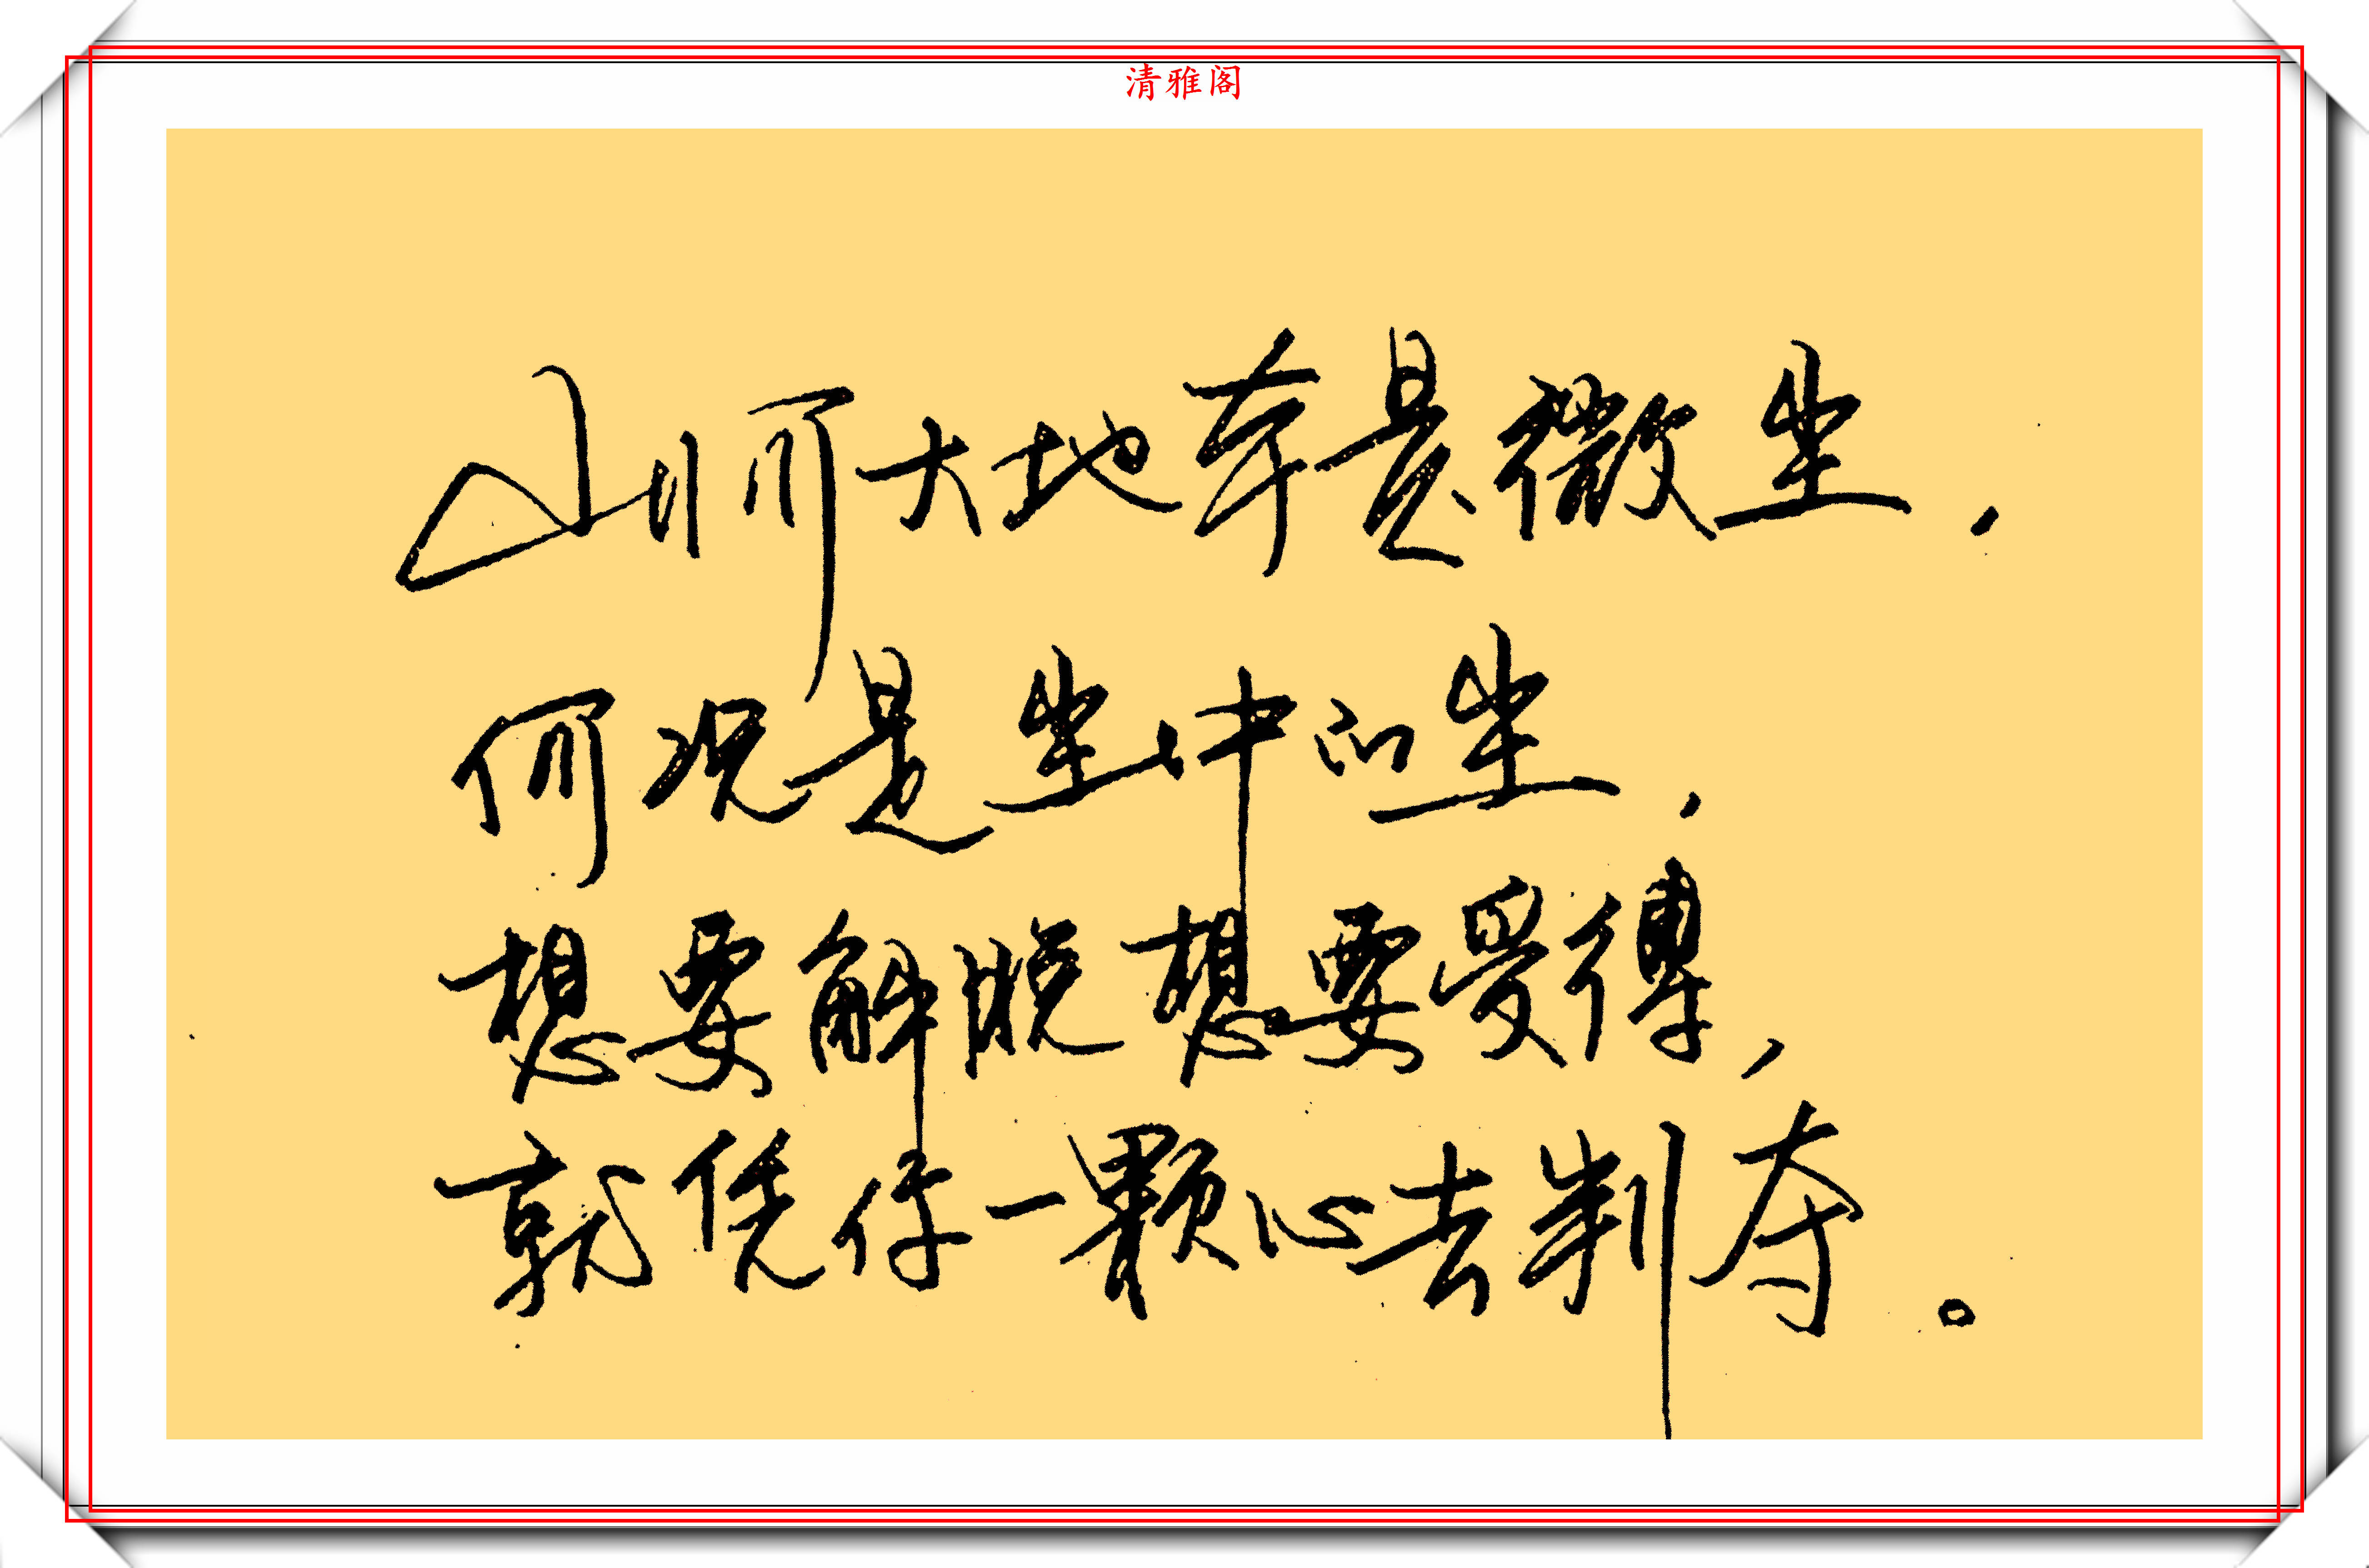 清雅阁
山河大地本是微尘,
何况是尘中的尘,
想要解脱想要受缚,
就凭你一颗心去判夺。